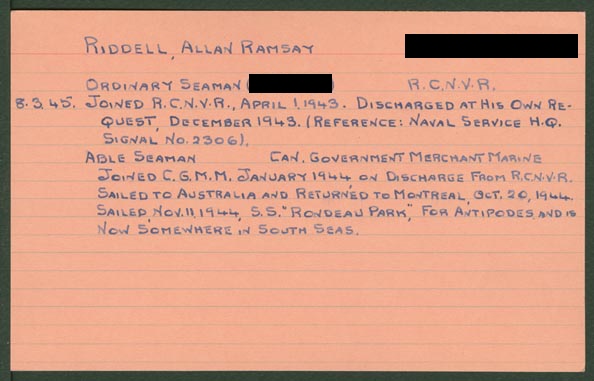 RIDDELL, ALLAN RAMSAY
ORDINARY SEAMAN ( ) R.C.N.V.R.
8.3.45. JOINED R.C.N.V.R., APRIL 1, 1943. DISCHARGED AT HIS OWN RE-
QUEST, DECEMBER 1943. (REFERENCE: NAVAL SERVICE H.Q.
SIGNAL NO. 2306).
ABLE SEAMAN CAN. GOVERNMENT MERCHANT MARINE
JOINED C.G.M.M. JANUARY 1944, ON DISCHARGE FROM R.C.N.V.R.
SAILED TO AUSTRALIA AND RETURNED TO MONTREAL, OCT. 20, 1944.
SAILED, NOV. 11, 1944, S.S. "RONDEAU PARK", FOR ANTIPODES, AND IS
NOW SOMEWHERE IN SOUTH SEAS.